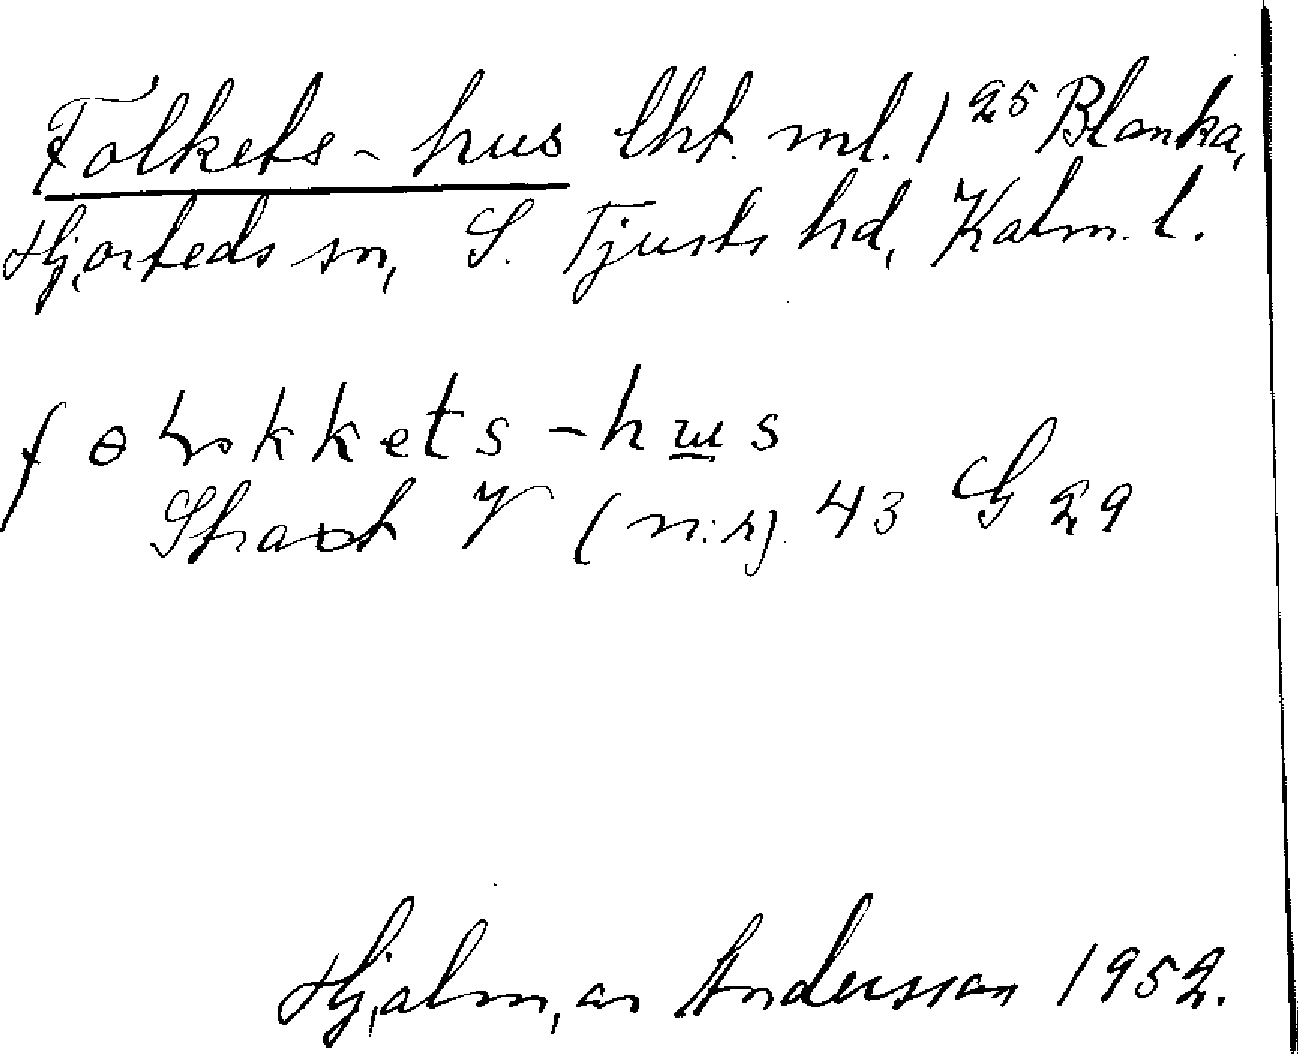 Folkets-hus lht. ml. 1²⁵ Blanka,
Hjorteds sn, S. Tjusts hd, Kalm. l.
kkets-hus
V (n:r). 43 G 29
Hjalmar Andersson 1952.